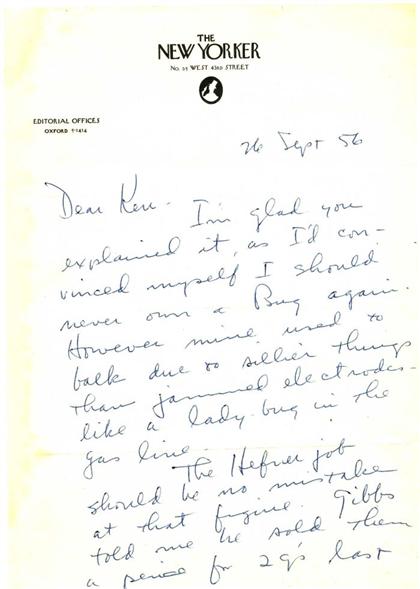 THE
NEW YORKER
No. 25 WEST 43RD STREET
EDITORIAL OFFICES
OXFORD 5-1414
26 Sept 56
Dear Ken -
I'm glad you
explained it, as I'd con-
vinced myself I should
never own a Bug again.
However mine used to
balk due to sillier things
than jammed electrodes -
like a lady-bug in the
gas line.
The Hefner job
should be no mistake
at that figure. Gibbs
told me he sold them
a for 2 g's last